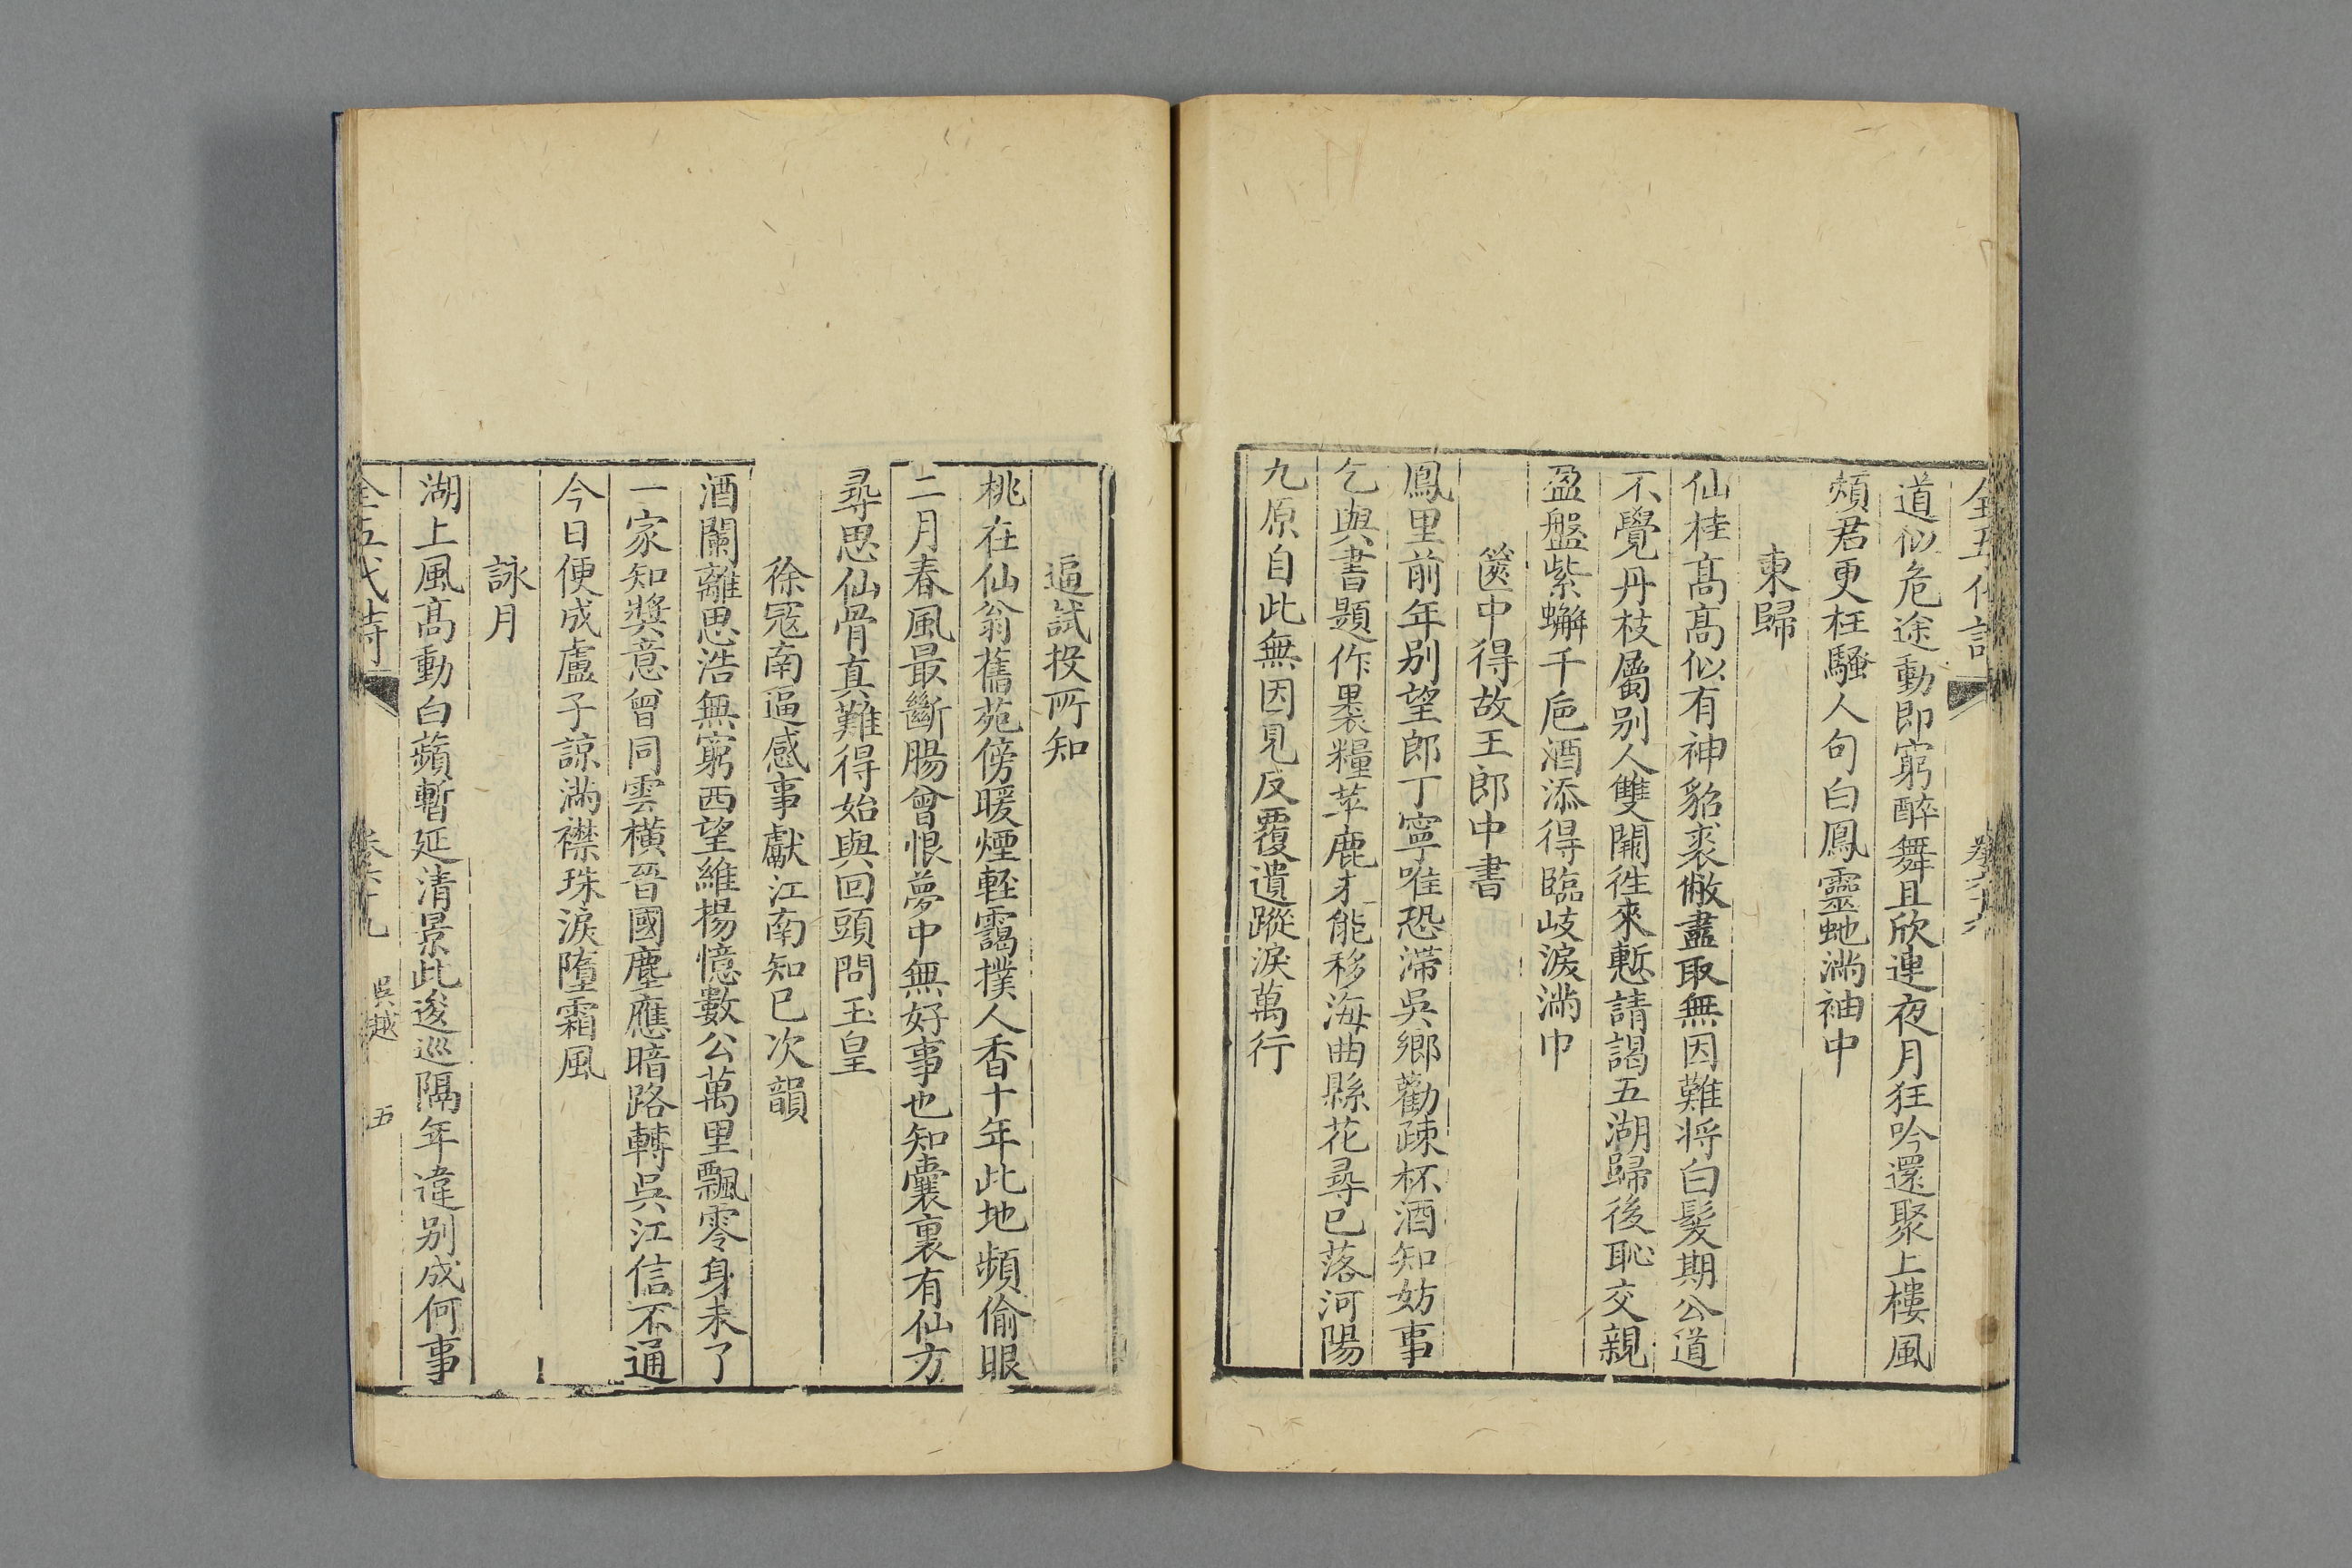 全五代詩
道似危途動即窮醉舞且欣連夜月狂吟還聚上樓風
頰君更枉騷人句白鳳靈虵滿袖中
東歸
仙桂髙髙似有神貂裘敝盡取無因難将白髮期公道
不覺丹枝屬别人雙闕徃來慙請謁五湖歸後恥交親
盈盤紫蠏千巵酒添得臨岐淚滿巾
篋中得故王郎中書
鳳里前年别望郎丁寧唯恐滯吳鄉勸疎杯酒知妨事
乞與書題作裹糧苹鹿才能移海曲縣花尋已落河陽
九原自此無因見反覆遺蹤淚萬行
逼試投所知
桃在仙翁舊苑傍暖煙輕靄撲人香十年此地頻偷眼
二月春風最斷腸曾恨夢中無好事也知囊裏有仙方
尋思仙骨真難得始與回頭問玉皇
徐冦南逼感事獻江南知已次韻
酒闌離思浩無窮西望維楊憶數公萬里飄零身未了
一家知奬意曾同雲横晉國塵應暗路轉吳江信不通
今日便成盧子諒滿襟珠淚墮霜風
詠月
湖上風髙動白蘋暫延清景此逡巡隔年違别成何事
全五代詩
卷六十九
吳越
五